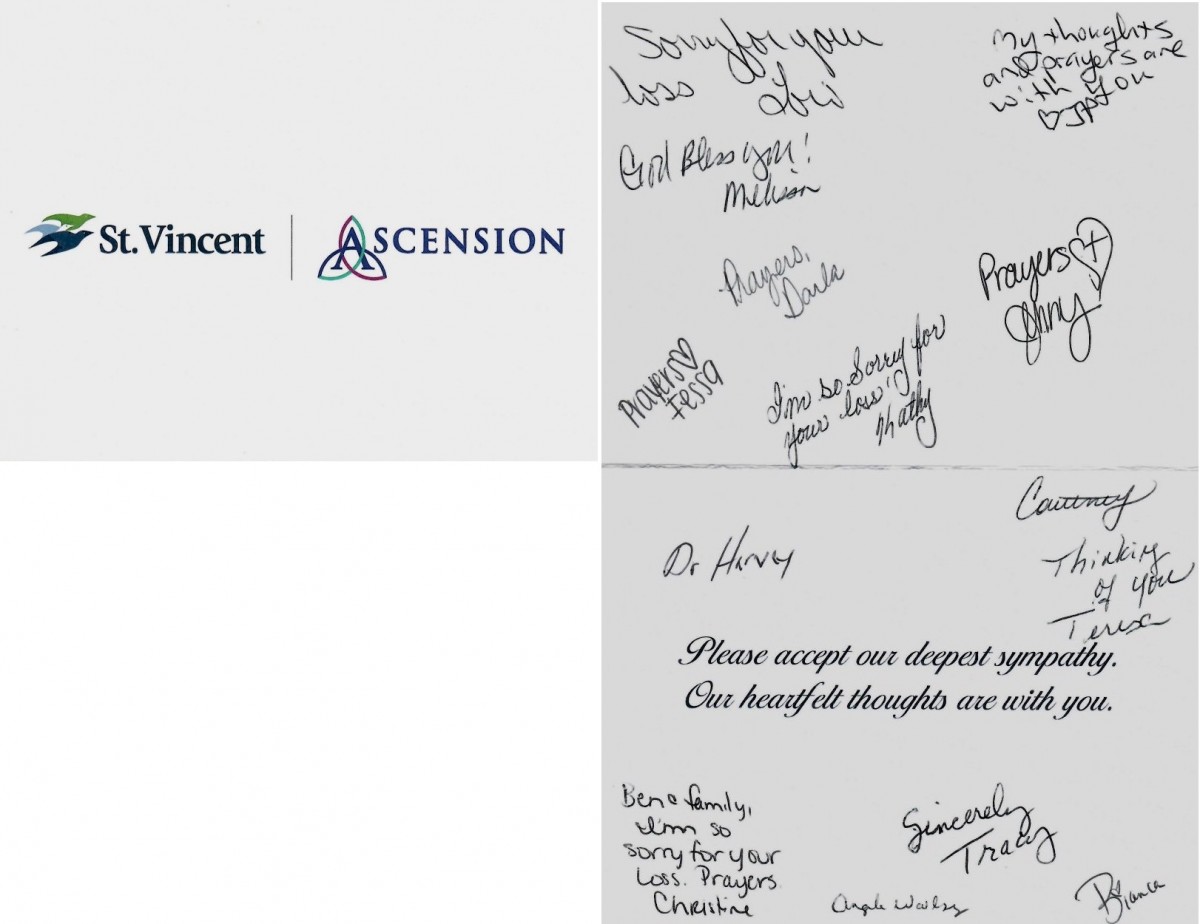 St.Vincent
ASCENSION
Sorry for your
loss Lori
My thoughts
and prayers are
with you
♡JP
God Bless you!
Melissa
Prayers,
Darla
Prayers
Jenny
Prayers♡
Tessa
I'm so sorry for
your loss
Kathy
Courtney
Dr Harvey
Thinking
of you
Teresa
Please accept our deepest sympathy.
Our heartfelt thoughts are with you.
Ben & family,
I'm so
sorry for your
Loss. Prayers
Christine
Sincerely
Tracy
Angela
Bianca